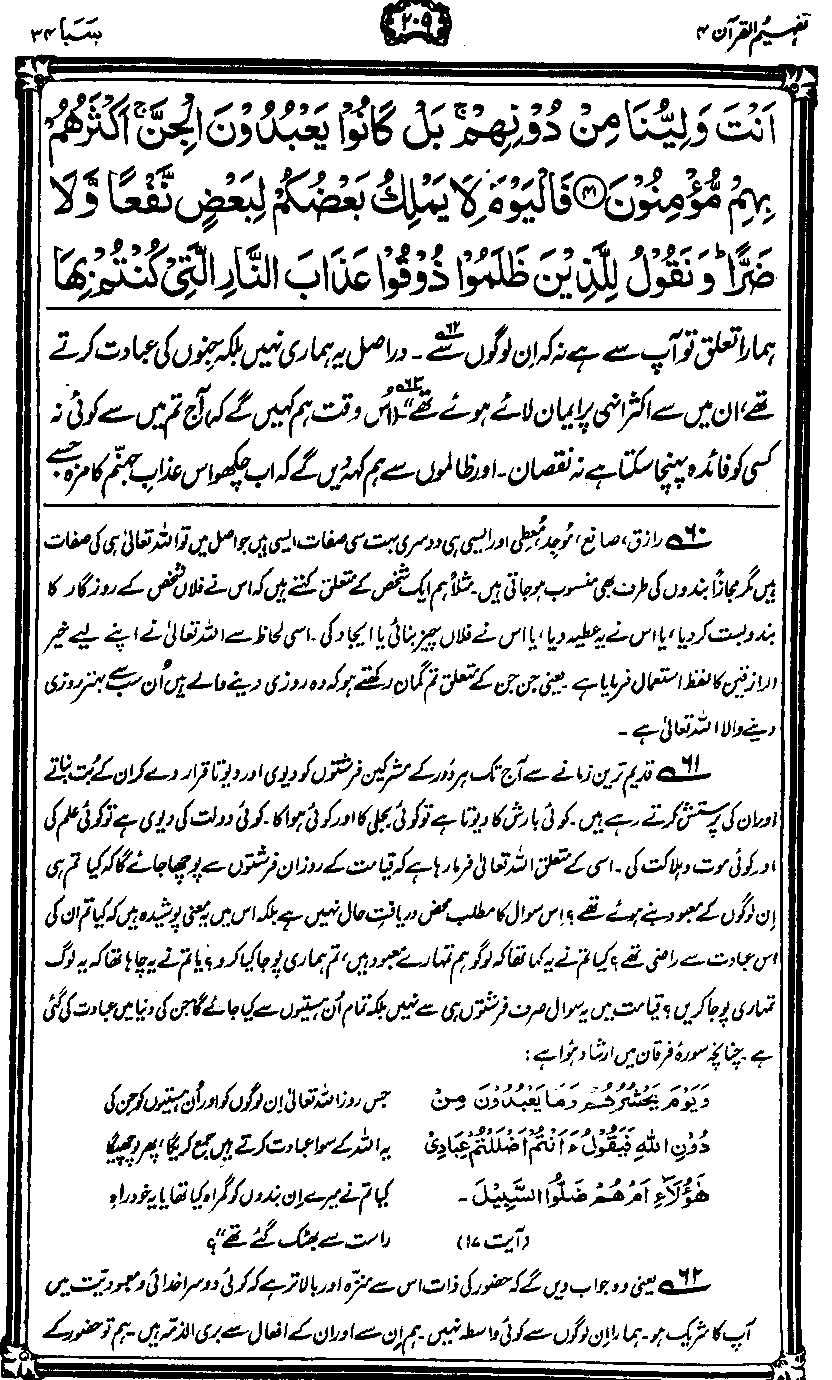 تفہیم القرآن ۴
۲۰۹
سَبَا ۳۴
اَنْتَ وَلِیُّنَا مِنْ دُوْنِهِمْ ۚ بَلْ كَانُوْا یَعْبُدُوْنَ الْجِنَّ ۚ اَكْثَرُهُمْ
بِهِمْ مُّؤْمِنُوْنَ ﴿۴۱﴾ فَالْیَوْمَ لَا یَمْلِكُ بَعْضُكُمْ لِبَعْضٍ نَّفْعًا وَّلَا
ضَرًّا ؕ وَنَقُوْلُ لِلَّذِیْنَ ظَلَمُوْا ذُوْقُوْا عَذَابَ النَّارِ الَّتِیْ كُنْتُمْ بِهَا
ہمارا تعلق تو آپ سے ہے نہ کہ اِن لوگوں سے۶۲۔ دراصل یہ ہماری نہیں بلکہ جِنوں کی عبادت کرتے
تھے، ان میں سے اکثر انہی پر ایمان لائے ہوئے تھے۶۳“۔ (اُس وقت ہم کہیں گے کہ) آج تم میں سے کوئی نہ
کسی کو فائدہ پہنچا سکتا ہے نہ نقصان۔ اور ظالموں سے ہم کہہ دیں گے کہ اب چکھو اس عذابِ جہنّم کا مزہ جسے
۶۰ رازق، صانع، مُوجِد، مُعطِی اور ایسی ہی دوسری بہت سی صفات ایسی ہیں جو اصل میں تو اللہ تعالیٰ ہی کی صفات
ہیں مگر مجازاً بندوں کی طرف بھی منسوب ہو جاتی ہیں۔ مثلاً ہم ایک شخص کے متعلق کہتے ہیں کہ اس نے فلاں شخص کے روزگار کا
بندوبست کر دیا، یا اس نے یہ عطیہ دیا، یا اس نے فلاں چیز بنائی یا ایجاد کی۔ اسی لحاظ سے اللہ تعالیٰ نے اپنے لیے خیر
الرازقین کا لفظ استعمال فرمایا ہے۔ یعنی جن جن کے متعلق تم گمان رکھتے ہو کہ وہ روزی دینے والے ہیں اُن سب سے بہتر روزی
دینے والا اللہ تعالیٰ ہے۔
۶۱ قدیم ترین زمانے سے آج تک ہر دَور کے مشرکین فرشتوں کو دیوی اور دیوتا قرار دے کر ان کے بُت بناتے
اور ان کی پرستش کرتے رہے ہیں۔ کوئی بارش کا دیوتا ہے تو کوئی بجلی کا اور کوئی ہوا کا۔ کوئی دولت کی دیوی ہے تو کوئی علم کی
اور کوئی موت و ہلاکت کی۔ اسی کے متعلق اللہ تعالیٰ فرما رہا ہے کہ قیامت کے روز ان فرشتوں سے پوچھا جائے گا کہ کیا تم ہی
اِن لوگوں کے معبود بنے ہوئے تھے؟ اِس سوال کا مطلب محض دریافتِ حال نہیں ہے بلکہ اس میں یہ معنی پوشیدہ ہیں کہ کیا تم ان کی
اس عبادت سے راضی تھے؟ کیا تم نے یہ کہا تھا کہ لوگو ہم تمہارے معبود ہیں، تم ہماری پوجا کیا کرو؟ یا تم نے یہ چاہا تھا کہ یہ لوگ
تمہاری پوجا کریں؟ قیامت میں یہ سوال صرف فرشتوں ہی سے نہیں بلکہ تمام اُن ہستیوں سے کیا جائے گا جن کی دنیا میں عبادت کی گئی
ہے۔ چنانچہ سورۂ فرقان میں ارشاد ہُوا ہے:
وَیَوْمَ یَحْشُرُهُمْ وَمَا یَعْبُدُوْنَ مِنْ
دُوْنِ اللّٰهِ فَیَقُوْلُ ءَاَنْتُمْ اَضْلَلْتُمْ عِبَادِیْ
هٰۤؤُلَآءِ اَمْ هُمْ ضَلُّوا السَّبِیْلَ۔
(آیت ۱۷)
جس روز اللہ تعالیٰ اِن لوگوں کو اور اُن ہستیوں کو جن کی
یہ اللہ کے سوا عبادت کرتے ہیں جمع کریگا، پھر پوچھیگا
کیا تم نے میرے اِن بندوں کو گمراہ کیا تھا یا یہ خود راہِ
راست سے بھٹک گئے تھے“؟
۶۲ یعنی وہ جواب دیں گے کہ حضور کی ذات اس سے منزّہ اور بالاتر ہے کہ کوئی دوسرا خدائی و معبودیّت میں
آپ کا شریک ہو۔ ہمارا اِن لوگوں سے کوئی واسطہ نہیں۔ ہم اِن سے اور ان کے افعال سے بری الذمّہ ہیں۔ ہم تو حضور کے